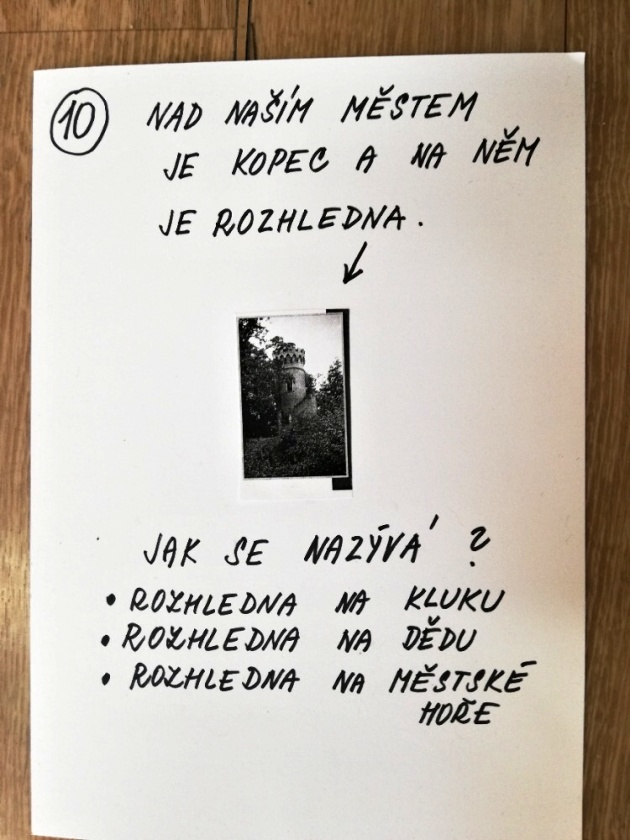 10 NAD NAŠÍM MĚSTEM
JE KOPEC A NA NĚM
JE ROZHLEDNA.
JAK SE NAZÝVÁ?
• ROZHLEDNA NA KLUKU
• ROZHLEDNA NA DĚDU
• ROZHLEDNA NA MĚSTSKÉ
HOŘE